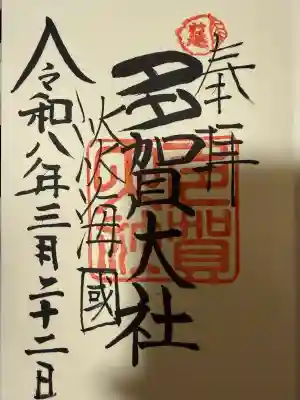 奉拝
多賀大社
淡海國
令和八年三月二十二日